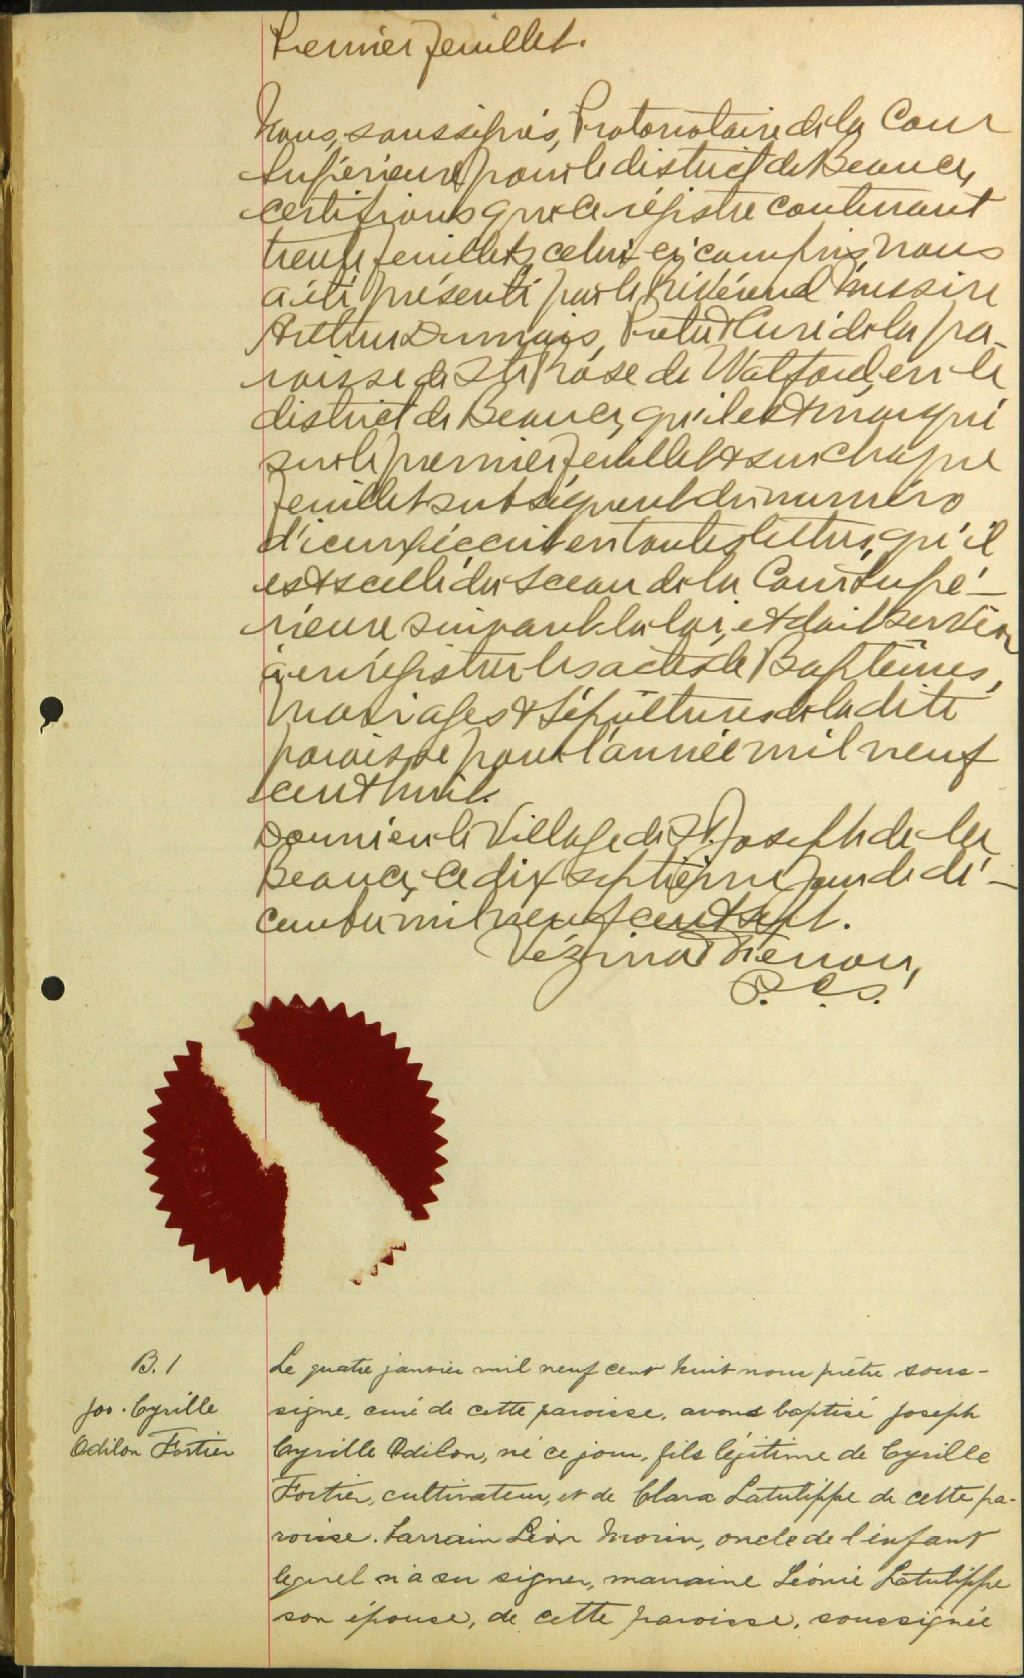 Premier feuillet.
Nous, soussignés, Protonotaire de la Cour
Supérieure pour le district de Beauce,
certifions que ce régistre contenant
trente feuillets celui-ci compris, nous
a été présenté par le Révérend Messire
Arthur Dumais, Prêtre & Curé de la pa-
roisse de Ste Rose de Watford, en le
district de Beauce, qu'il est marqué
sur le premier feuillet & sur chaque
feuillet subséquent du numéro
d'icelui écrit en toutes lettres, qu'il
est scellé du sceau de la Cour Supé-
rieure suivant la loi, et doit servir
à enrégistrer les actes de Baptêmes,
Mariages & Sépultures de la dite
paroisse pour l'année mil neuf
cent huit.
Donné en le Village de St. Joseph de la
Beauce, ce dix septième jour de dé-
cembre mil neuf cent sept.
Vézina &
P. C. S.
B. 1
Jos. Cyrille
Odilon Fortier
Le quatre janvier mil neuf cent huit nous prêtre sous-
signé, curé de cette paroisse, avons baptisé Joseph
Cyrille Odilon, né ce jour, fils légitime de Cyrille
Fortier, cultivateur, et de Clara Latulippe de cette pa-
roisse. Parrain Léon Morin, oncle de l'enfant
lequel n'a su signer, marraine Léonie Latulippe
son épouse, de cette paroisse, soussignée